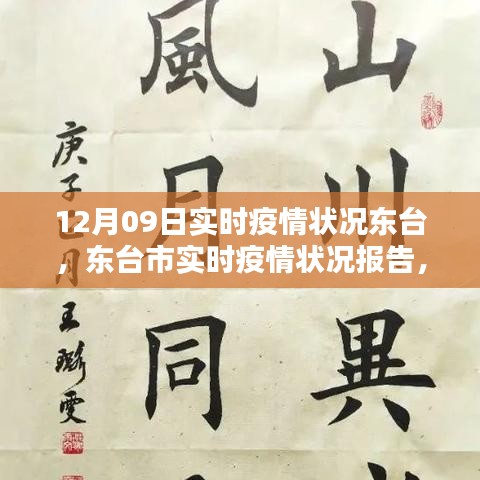 山川異
風月同
庚子 月王 雯
12月09日实时疫情状况东台
，东台市实时疫情状况报告，